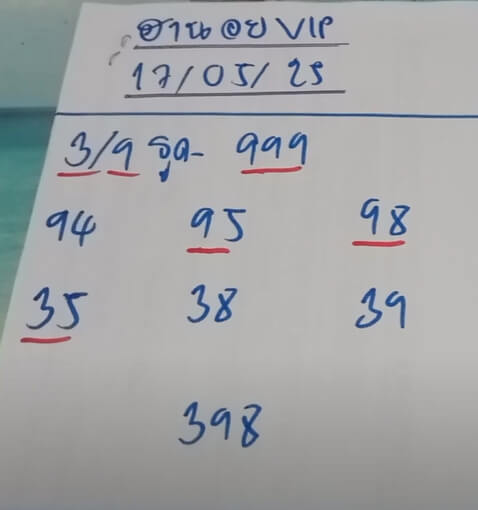 ฮานอย VIP
17/05/25
3/9 รูด- 999
94 95 98
35 38 39
398